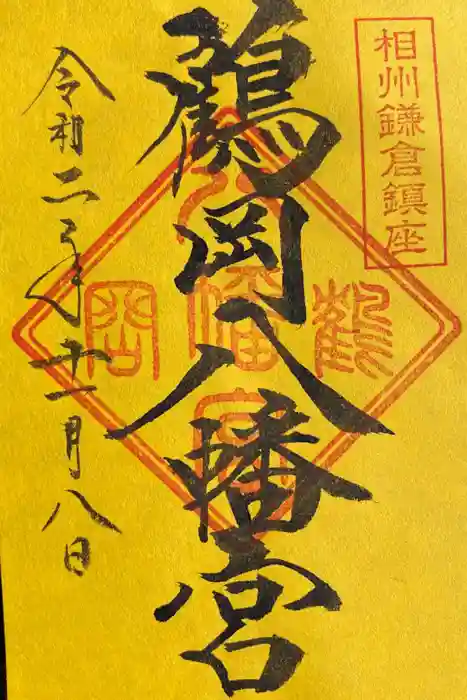 相州鎌倉鎮座
鶴岡八幡宮
令和二年十一月八日
鶴
八幡宮
岡